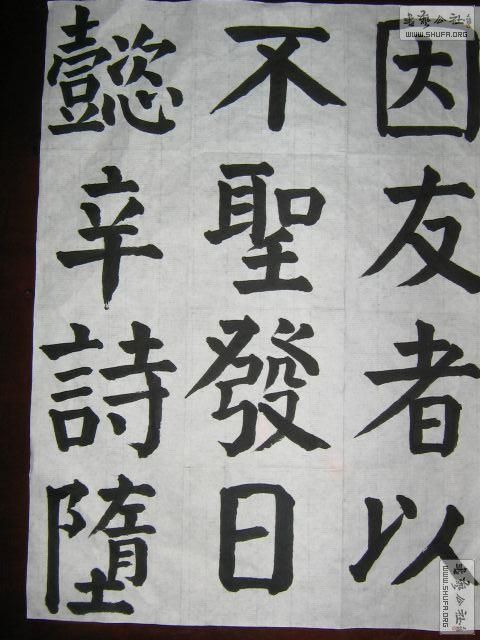 因友者以
不聖發日
懿辛詩墮
書法公社
WWW.SHUFA.ORG
书法公社
WWW.SHUFA.ORG